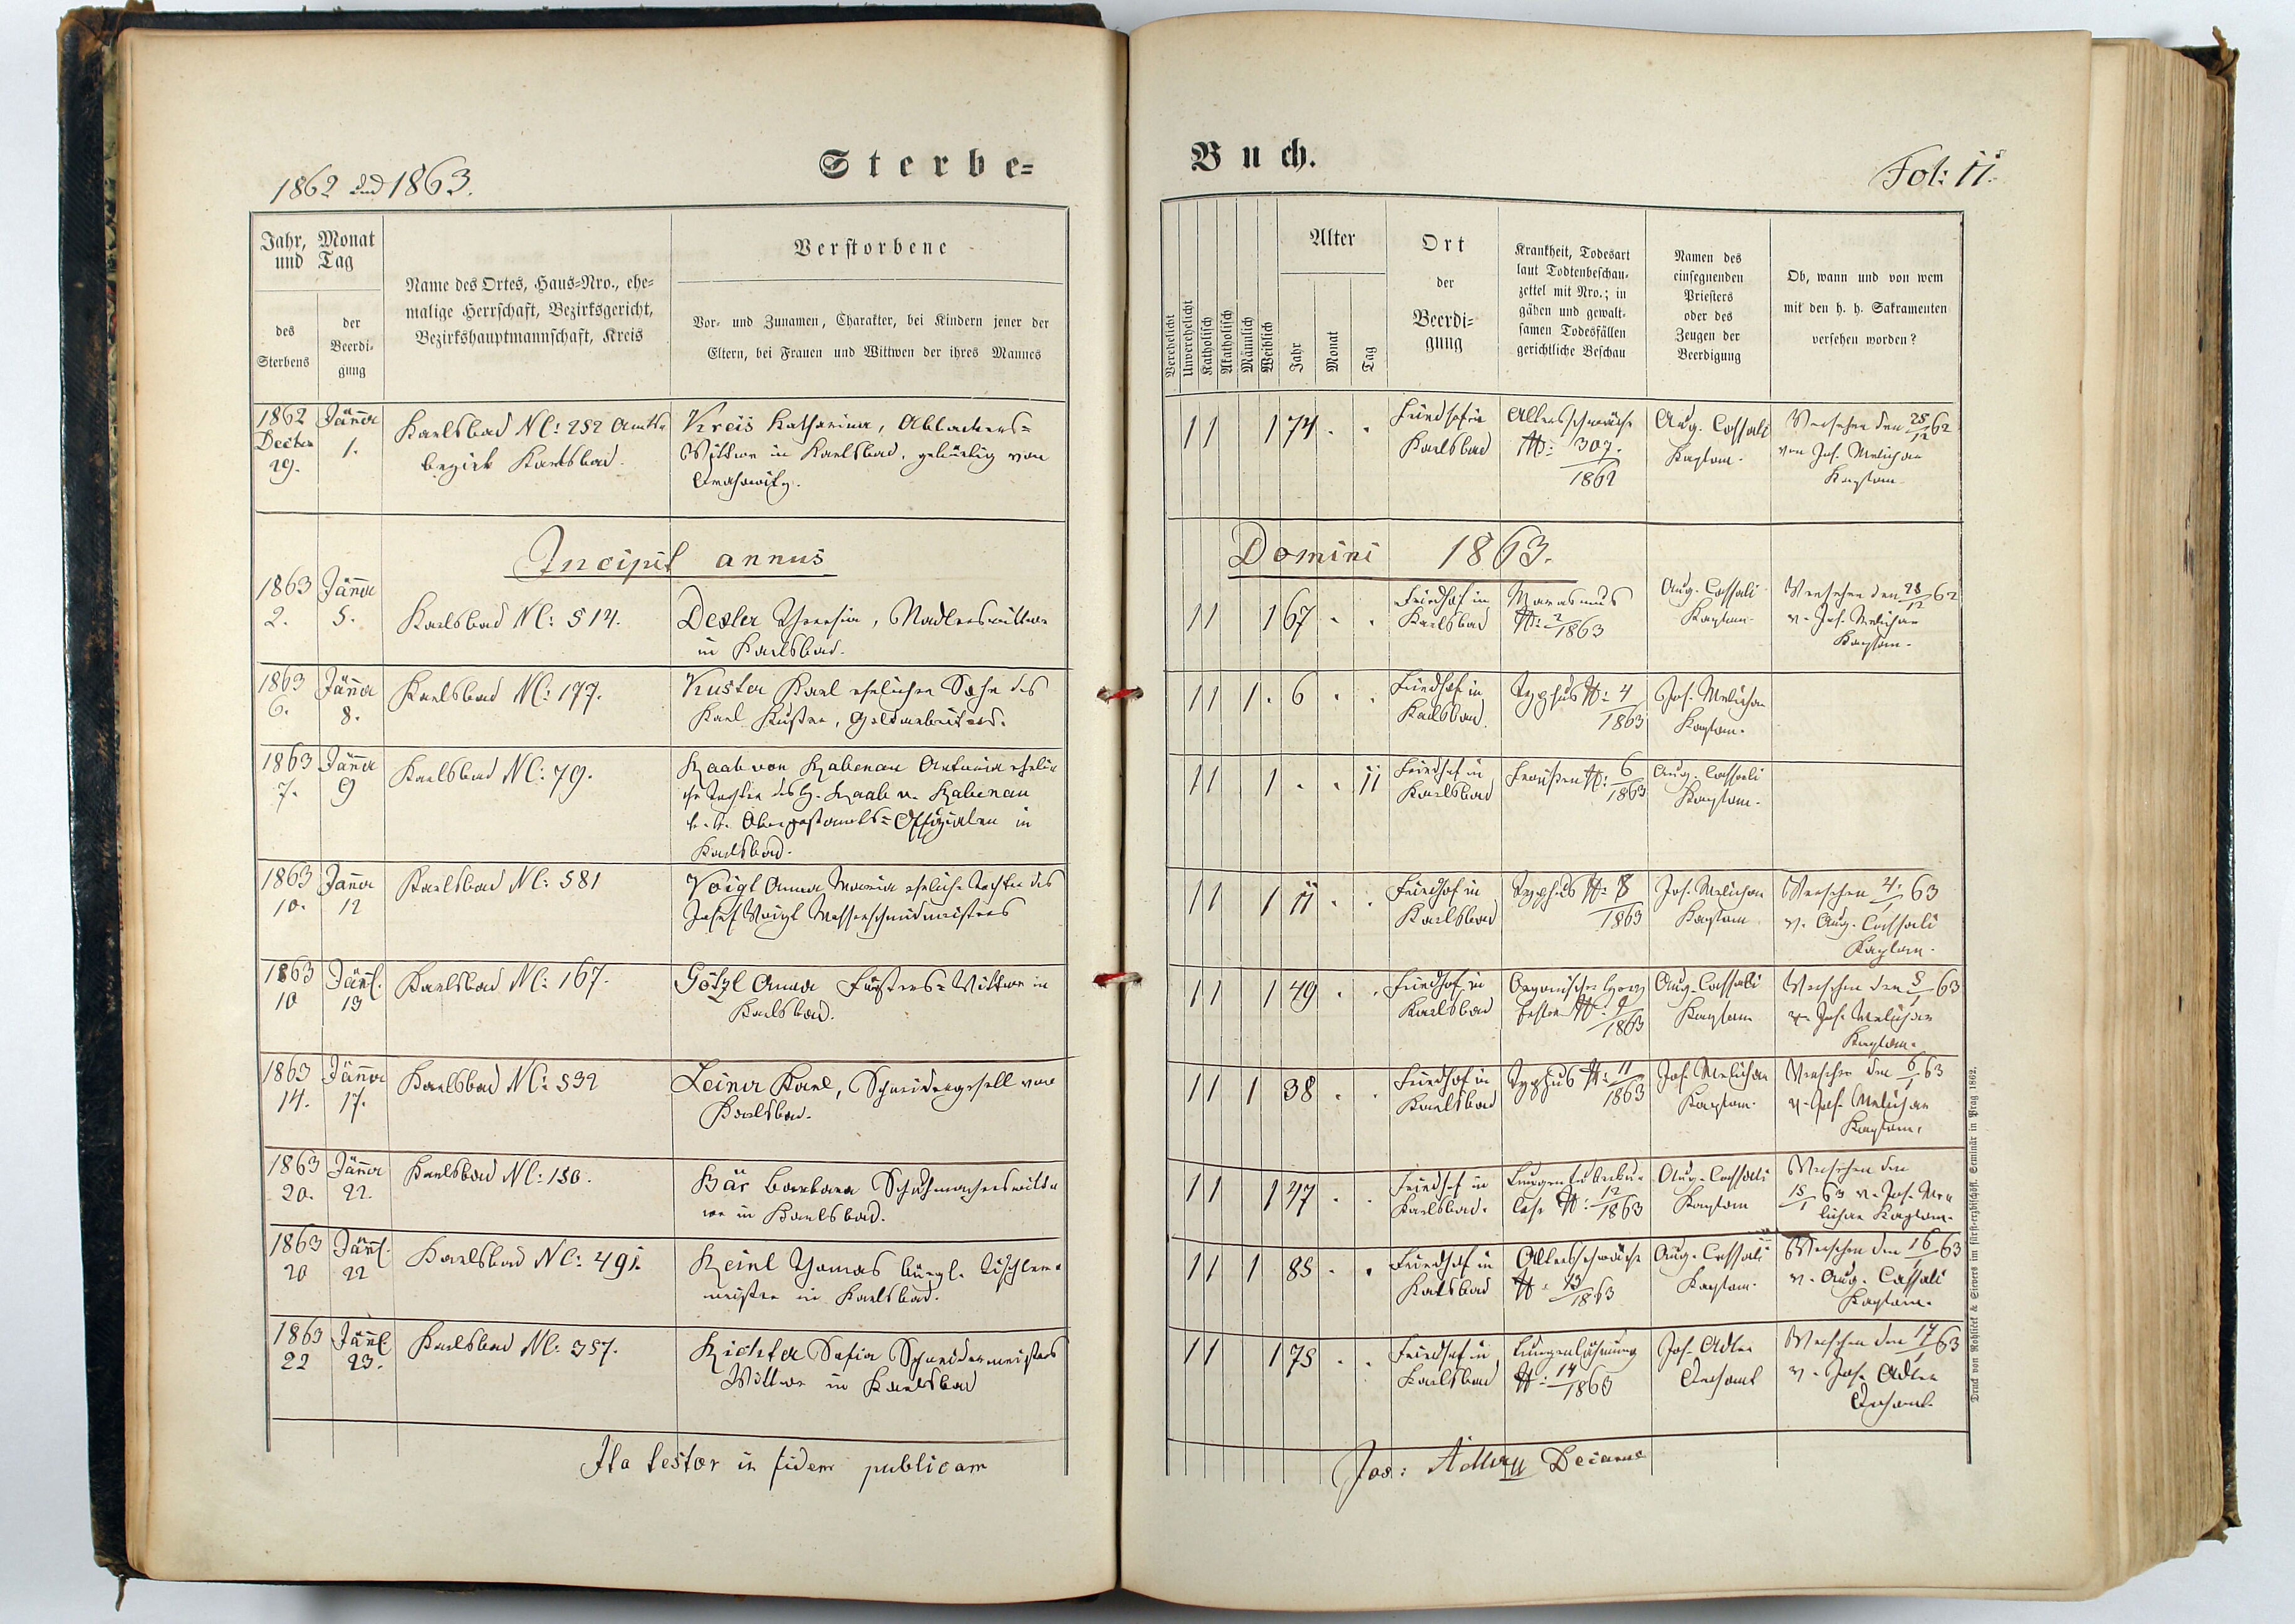 1862 und 1863.
Sterbe=
Jahr, Monat
und Tag
des
Sterbens
der
Beerdi-
gung
Name des Ortes, Haus=Nro., ehe=
malige Herrschaft, Bezirksgericht,
Bezirkshauptmannschaft, Kreis
Verstorbene
Vor- und Zunamen, Charakter, bei Kindern jener der
Eltern, bei Frauen und Wittwen der ihres Mannes
1862 Jänner
Decbr
29. 1.
Karlsbad NC: 252 Amts
bezirk Karlsbad.
Kreis Katharina, Abladers=
Wittwe in Karlsbad, gebürtig von
Incipit annus
1863 Jänner
2. 5.
Karlsbad NC: 514.
Dexler Theresia, Nadlerswittwe
in Karlsbad.
1863 Jänner
6. 8.
Karlsbad NC: 177.
Kuster Karl ehelicher Sohn des
Karl Kuster, Goldarbeiters.
1863 Jänner
7. 9
Karlsbad NC: 79.
Raab von Rabenau Antonia eheli
che Tochter des H. Raab v. Rabenau
k. k. Oberpostamts=Offizialen in
Karlsbad.
1863 Jänner
10. 12
Karlsbad NC: 581
Voigt Anna Maria eheliche Tochter des
Josef Voigt Messerschmidmeisters
1863 Jänn.
10 13
Karlsbad NC: 167.
Götzl Anna Försters=Wittwe in
Karlsbad.
1863 Jänner
14. 17.
Karlsbad NC: 532
Leiner Karl, Schneidergesell von
Karlsbad.
1863 Jänner
20. 22.
Karlsbad NC: 150.
Bär Barbara Schuhmacherswitt
we in Karlsbad.
1863 Jänn.
20 22
Karlsbad NC: 491.
Keinl Thomas bürgl. Tischler
meister in Karlsbad.
1863 Jänn.
22 23.
Karlsbad NC: 357.
Richter Sofia Schneidermeisters
Wittwe in Karlsbad
Ita testor in fidem publicam
Buch.
Fol: 11.
Verehelicht
Unverehelicht
Katholisch
Akatholisch
Männlich
Weiblich
Alter
Jahr
Monat
Tag
Ort
der
Beerdi=
gung
Krankheit, Todesart
laut Todtenbeschau-
zettel mit Nro.; in
gähen und gewalt-
samen Todesfällen
gerichtliche Beschau
Namen des
einsegnenden
Priesters
oder des
Zeugen der
Beerdigung
Ob, wann und von wem
mit den h. h. Sakramenten
versehen worden?
1 1 1 74 . .
Friedhof in
Karlsbad
Altersschwäche
No: 307.
1862
Aug. Cassali
Kaplan.
Versehen den 28/12 62
von Jos. Melichar
Kaplan
Domini 1863.
1 1 1 67 . .
Friedhof in
Karlsbad
Marasmus
No: 2/1863
Aug. Cassali
Kaplan.
Versehen den 28/12 62
v. Jos. Melichar
Kaplan.
1 1 1 . 6 . .
Friedhof in
Karlsbad
Typhus No: 4
1863
Jos. Melichar
Kaplan.
1 1 1 . . 11
Friedhof in
Karlsbad
Fraißen No: 6
1863
Aug. Cassali
Kaplan.
1 1 1 11 . .
Friedhof in
Karlsbad
Typhus No: 8
1863
Jos. Melichar
Kaplan
Versehen 4/1 63
v. Aug. Cassali
Kaplan.
1 1 1 49 . .
Friedhof in
Karlsbad
Organischer Herz
fehler No: 9
1863
Aug. Cassali
Kaplan
Versehen den 8/1 63
v. Jos. Melichar
Kaplan.
1 1 1 38 . .
Friedhof in
Karlsbad
Typhus No: 11
1863
Jos. Melichar
Kaplan.
Versehen den 6/1 63
v. Jos. Melichar
Kaplan.
1 1 1 47 . .
Friedhof in
Karlsbad.
Lungentuberku
lose No: 12/1863
Aug. Cassali
Kaplan
Versehen den
15/1 63 v. Jos. Me
lichar Kaplan.
1 1 1 85 . .
Friedhof in
Karlsbad
Altersschwäche
No: 13/1863
Aug. Cassali
Kaplan.
Versehen den 16/1 63
v. Aug. Cassali
Kaplan.
1 1 1 75 . .
Friedhof in
Karlsbad
Lungenlähmung
No: 14/1863
Jos. Adler
Dechant
Versehen den 17/1 63
v. Jos. Adler
Dechant.
Jos: Adler Decanus
Druck von Rohliček & Sievers im fürst-erzbischöfl. Seminär in Prag 1862.